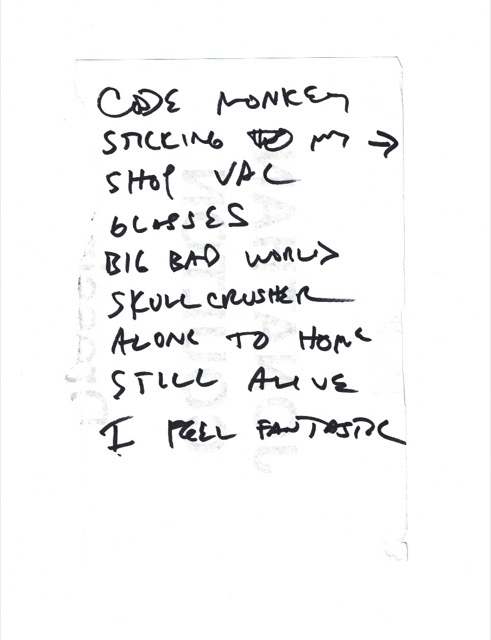 CODE MONKEY
STICKING TO MY →
SHOP VAC
GLASSES
BIG BAD WORLD
SKULLCRUSHER
ALONE TO HOME
STILL ALIVE
I FEEL FANTASTIC